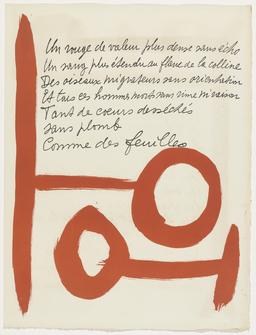 Un rouge de valeur plus dense sans écho
Un sang plus étendu au flanc de la colline
Des oiseaux migrateurs sans orientation
Et tous ces hommes morts sans rime ni raison
Tant de cœurs desséchés
sans plomb
Comme des feuilles